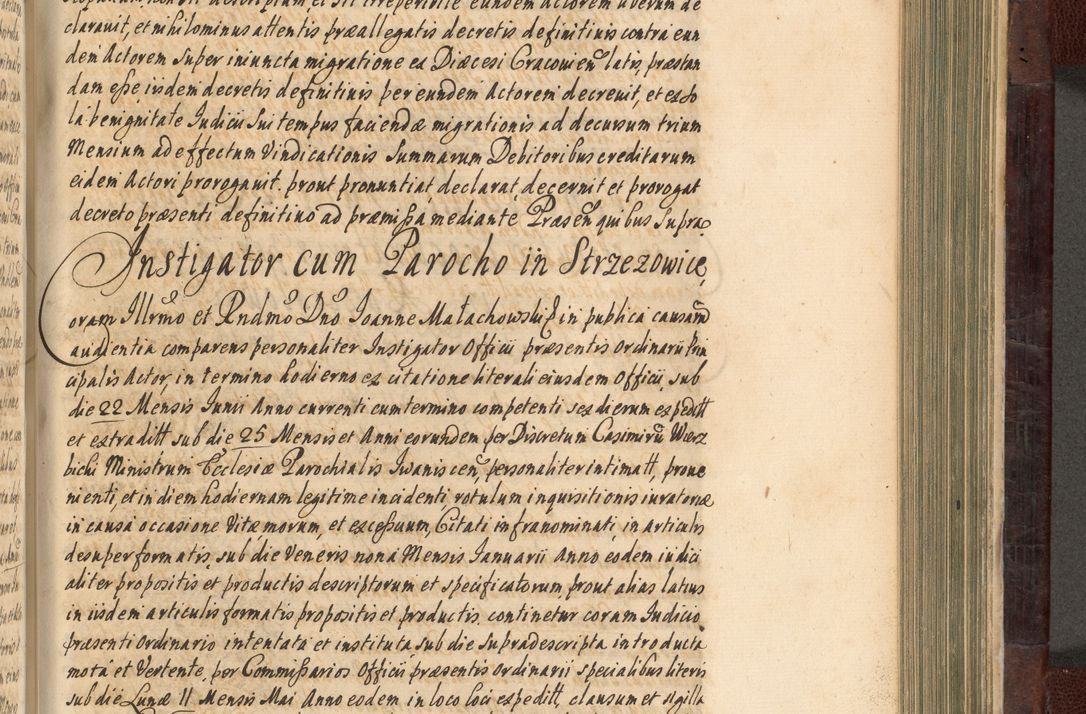 clarauit, et nihilominus attentis præallegatis decretis definitiuis contra eun
dem Actorem super iniuncta migratione ex Diæcesi Cracouien latis, præstan
dam esse iisdem decretis definitiuis per eundem Actorem decreuit, et ex so
la benignitate Iudicii sui tempus faciendæ migrationis ad decursum trium
Mensium ad effectum Vindicationis Summarum Debitoribus creditarum
eidem Actori prorogauit. prout pronuntiat declarat, decernit et prorogat
decreto præsenti definitiuo ad præmissa mediante Præsen quibus supra
Instigator cum Parocho in Strzezowice,
oram Illrmo et Rndmo Dno Ioanne Małachowski in publica causarum
audientia comparens personaliter Instigator Officii præsentis Ordinarii Prin
cipalis Actor, in termino hodierno ex citatione literali eiusdem Officii, sub
die 22 Mensis Iunii Anno currenti cum termino competenti sex dierum expeditt
et extraditt sub die 25 Mensis et Anni eorundem per Discretum Casimirū Wierz
bicki Ministrum Ecclesiæ Parochialis Iwaniscen, personaliter intimatt, proue
nienti, et in diem hodiernam legitime incidenti, rotulum inquisitionis iuratoriæ
in causa occasione Vitæ morum, et excessuum, Citati infranominati, in articulis
desuper formatis, sub die Veneris nona Mensis Ianuarii Anno eodem iudici
aliter propositis et productis descriptorum et specificatorum, prout alias latius
in iisdem articulis formatis propositis et productis continetur coram Iudicio
præsenti Ordinario intentata et instituta, sub die supradescripta introducta
mota et Vertente, per Commissarios Officii præsentis Ordinarii specialibus literis
sub die Lunæ 11 Mensis Mai Anno eodem in loco loci expeditt, clausum et sigilla